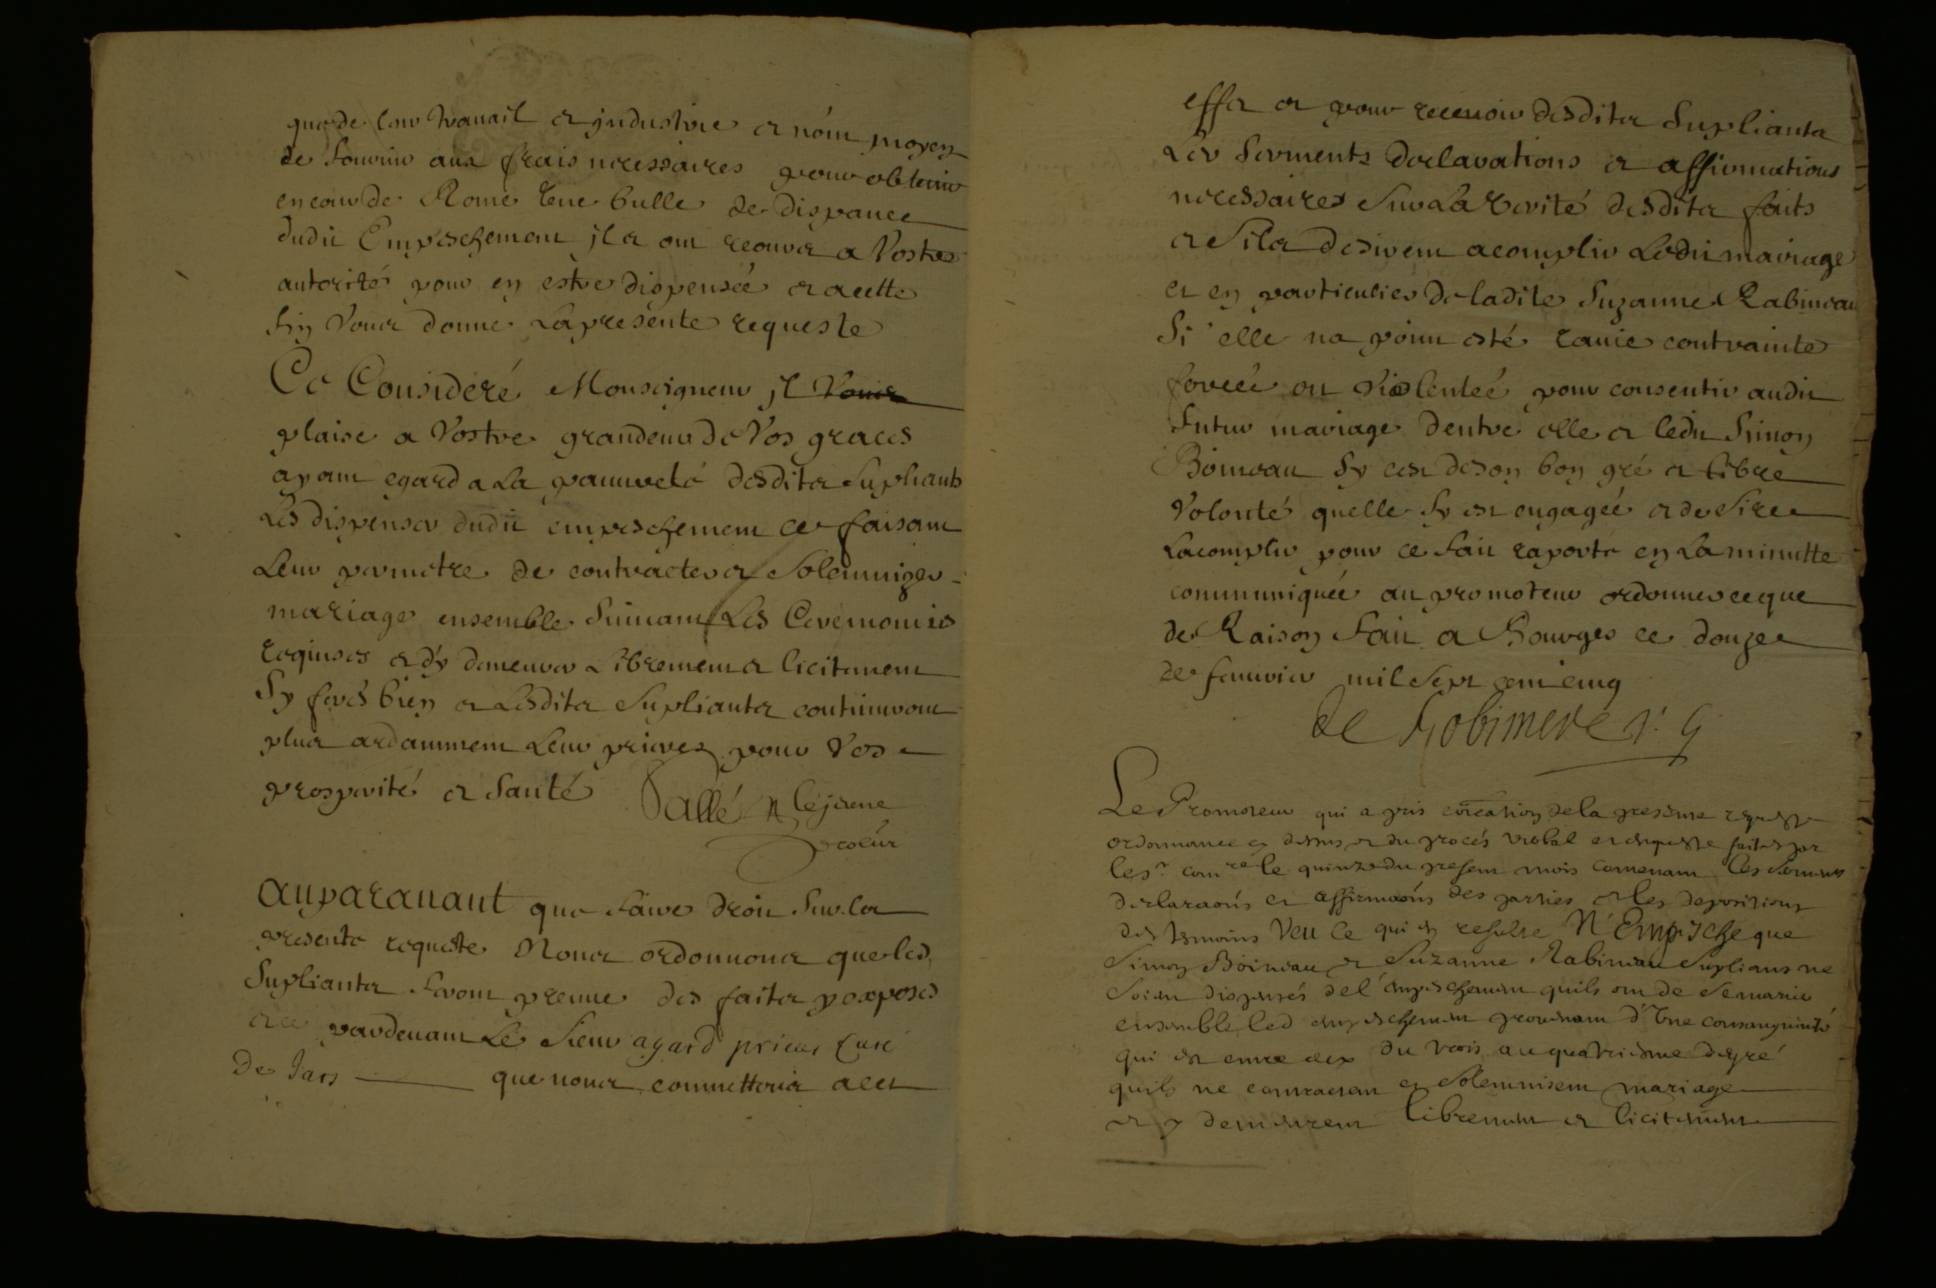 que de leur travail et jndustrie et nónt moyen
de fournir aux frais necessaires pour obtenir
en cour de Rome une bulle de dispance
dudit Empeschement jls ont recours a Vostre
autorité pour en estre dispenséé et a cette
fin Vous donne la presente requeste
Ce Consideré Monseigneur jl Vous
plaise a Vostre grandeur de Vos graces
ayant egard a la pauureté desdits supliants
les dispenser dudit empeschement ce faisant
leur permetre de contracter et solemnizer
mariage ensemble suiuant les Ceremonies
requises et d'y demeurer librement et licitement
sy ferés bien et lesdits supliants continuront
plus ardamment leur prieres pour vos
prosperité et santé Sallé lejeune
proceur
auparauant que faire droit sur la
presente requeste Nous ordonnons que les
supliants feront preuue des faits y exposés
et ce pardeuant le sieur agard prieur Curé
De Jars que nous commettons a cet
effet et pour receuoir desdits supliants
les serments declarations et affirmations
necessaires sur la verité desdits faits
et s'ils desirent acomplir ledit mariage
et en particulier de ladite suzanne Rabineau
si elle na point esté rauie contrainte
forcéé ou violentéé pour consentir audit
futur mariage dentre elle et ledit simon
Boineau sy cest deson bon gré et libre
volonté quelle sy est engagéé et desire
lacomplir pour ce fait raporté en la minutte
communiquéé au promoteur ordonner ce que
de Raison fait a Bourges ce douze
de feurier mil sept cent cinq
de v. g
Le Promoteur qui a pris coïcation de la presente requeste
ordonnance cy dessus et du procés verbal et enqueste faites par
le sr. comre le quinze du present mois contenant les sermens
declaraons et affirmaons des parties et les depositions
des temoins Veu ce qui en resulte N'Empesche que
Simon Boineau et Suzanne Rabineau suplians ne
soient dispensés de l'empeschement quils ont de se marier
ensemble led empeschement prouenant d'Une consanguinité
qui est entre eux du trois au quatriesme degré
quils ne contractent et solemnisent mariage
et y demeurent librement et licitement